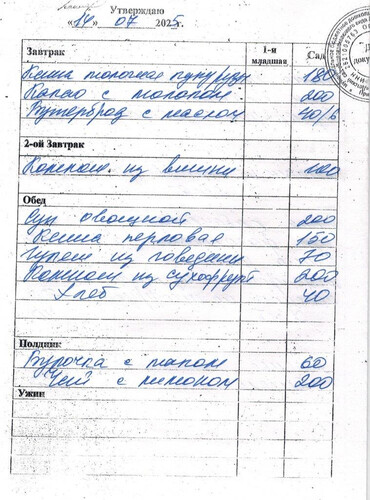 Утверждаю
«14» 07 2025г.
Завтрак 1-я младшая Сад
Каша молочная кукуруз 180
Какао с молоком 200
Бутерброд с маслом 40/5
2-ой Завтрак
Компот из вишни 100
Обед
Суп овощной 200
Каша перловая 150
Гуляш из говядины 70
Компот из сухофрукт 200
Хлеб 40
Полдник
Булочка с маком 60
Чай с лимоном 200
Ужин